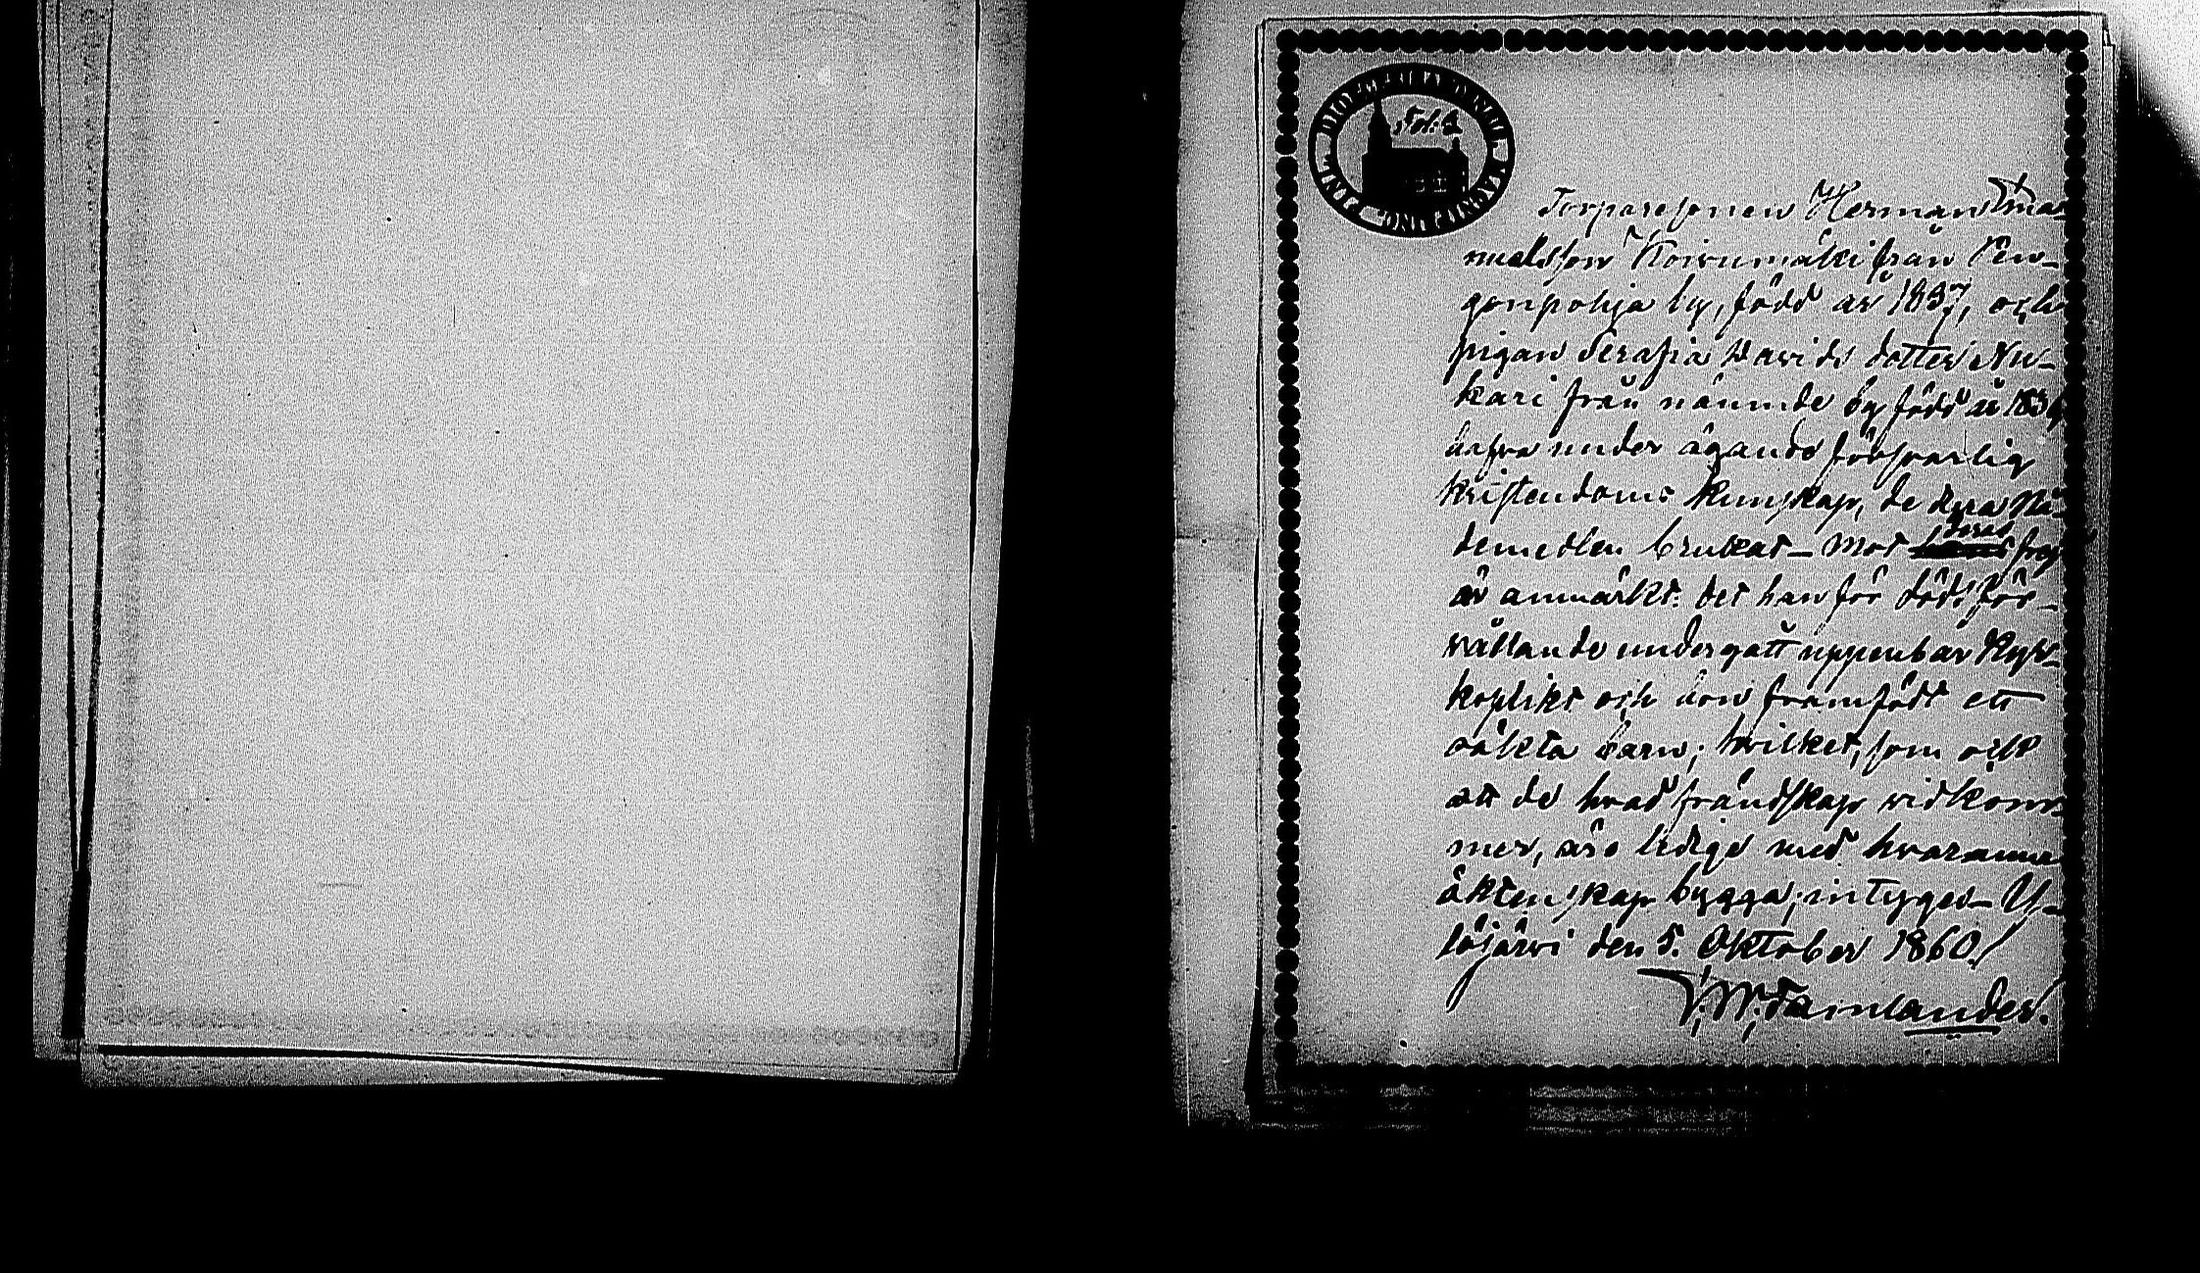 Fol: 2
Torparesonen Herman Ema
nuelsson Koivumäki från Pen-
gonpohja by, född år 1837, och
pigan Serafia Davids dotter Nu-
kari från nämnde by född år 183
hafva under ägande försvarlig
kristendoms kunskap, de dyra Nå-
demedlen brukat – mot deras frejd
är anmärkt: det han för döds för-
vållande undergått uppenbar Kyr-
koplikt och hon framfödt ett
oäkta barn; hvilket, som ock
att de hvad frändskap vidkom-
mer, äro ledige med hvaranna
äktenskap bygga; intygas – Y-
löjärvi den 5. Oktober 1860!
F. W. Tamlander.